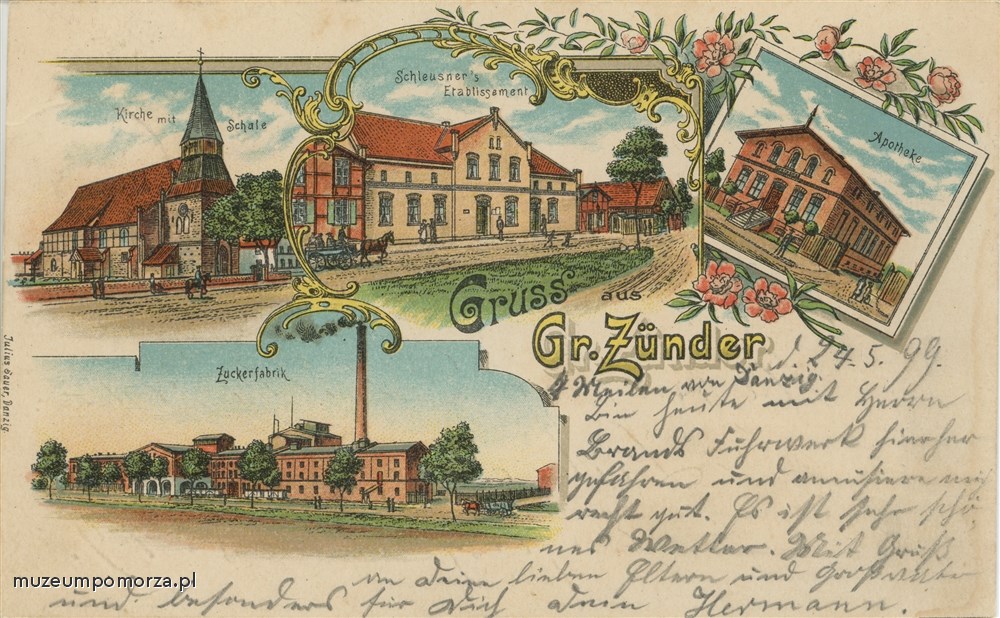 Kirche mit Schale
Schleusner's
Etablissement
Apotheke
Gruss aus
Gr. Zünder
Zuckerfabrik
Julius Sauer, Danzig
d. 24.5.99.
4 Meilen von Danzig.
Bin heute mit Herrn
Brands Fuhrwerk hierher
gefahren und amüsiere mich
recht gut. Es ist sehr schö-
nes Wetter. Mit Gruß
an Deine lieben Eltern und Großmutter
und besonders für Dich Dein Hermann.
muzeumpomorza.pl